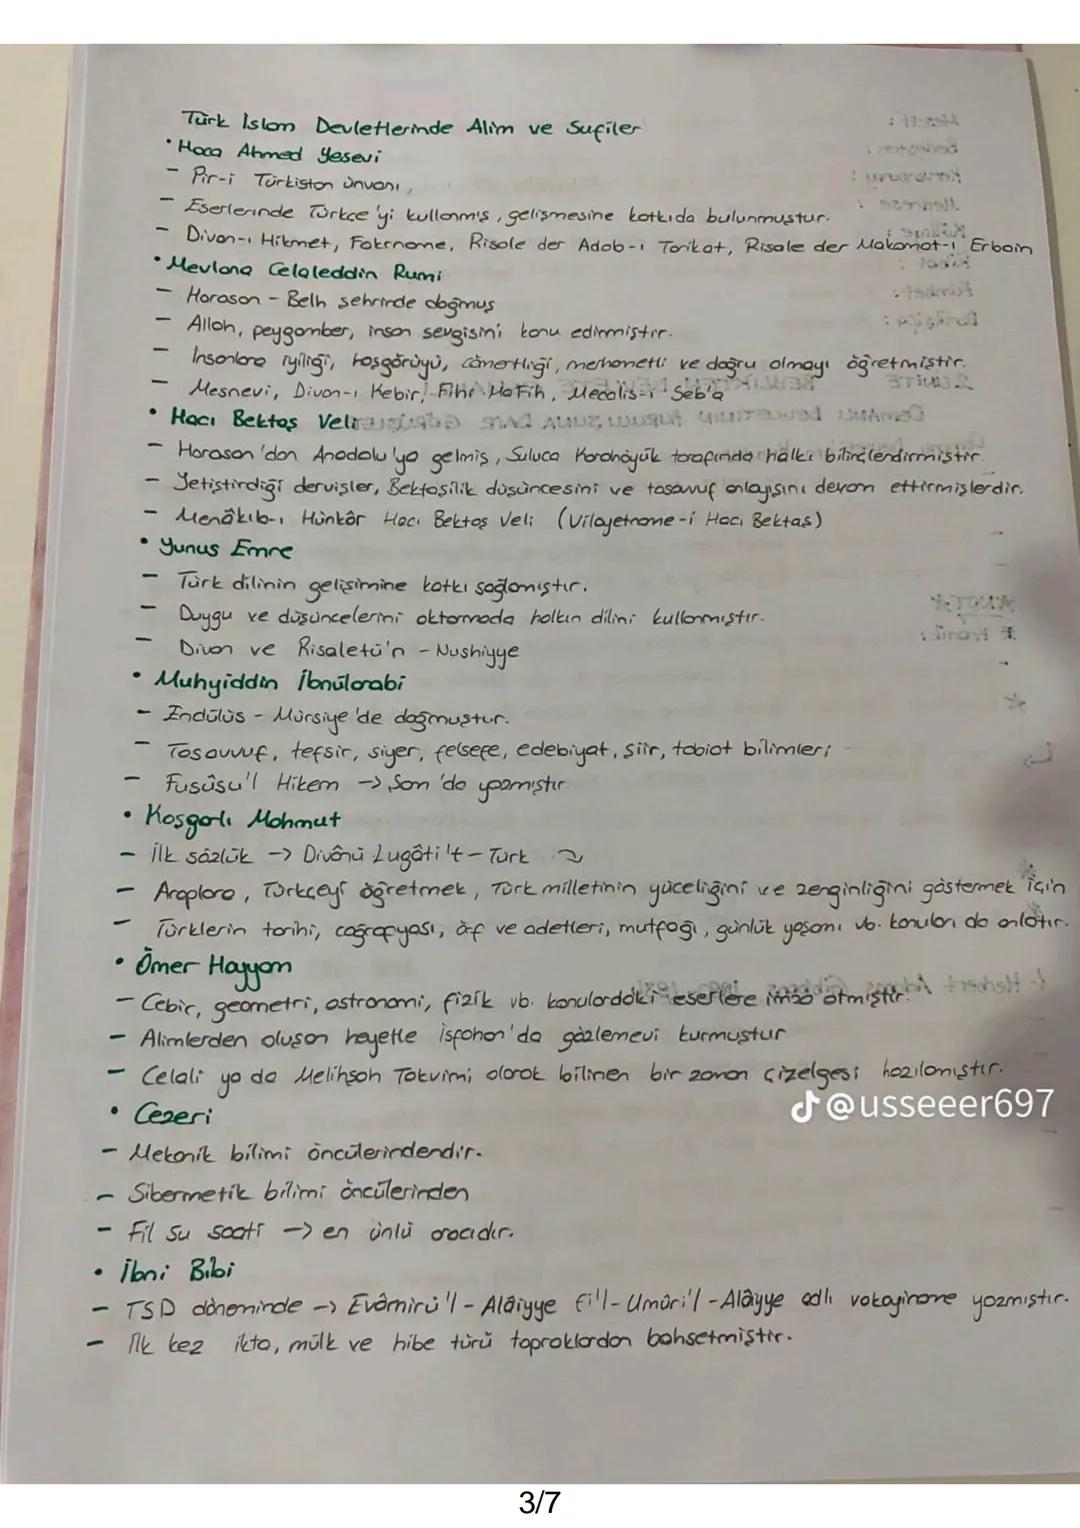 Türk İslam Devletlerinde Alim ve Sufiler
• Hoca Ahmed Yesevi
- Pir-i Türkistan ünvanı,
- Eserlerinde Türkçe'yi kullanmış, gelişmesine katkıda bulunmuştur.
- Divan-ı Hikmet, Fakrname, Risale der Adab-ı Tarikat, Risale der Makamat-ı Erbain
• Mevlana Celaleddin Rumi
- Horasan - Belh şehrinde doğmuş
- Allah, peygamber, insan sevgisini konu edinmiştir.
- İnsanlara iyiliği, hoşgörüyü, cömertliği, merhametli ve doğru olmayı öğretmiştir.
- Mesnevi, Divan-ı Kebir, Fihi Ma Fih, Mecalis-i Seb'a
• Hacı Bektaş Veli
- Horasan'dan Anadolu'ya gelmiş, Suluca Karahöyük tarafında halkı bilinçlendirmiştir
- Yetiştirdiği dervişler, Bektaşilik düşüncesini ve tasavvuf anlayışını devam ettirmişlerdir.
- Menâkıb-ı Hünkâr Hacı Bektaş Veli (Vilayetname-i Hacı Bektaş)
• Yunus Emre
- Türk dilinin gelişimine katkı sağlamıştır.
- Duygu ve düşüncelerini aktarmada halkın dilini kullanmıştır.
- Divan ve Risaletü'n - Nushiyye
• Muhyiddin İbnülarabi
- Endülüs - Mürsiye'de doğmuştur.
- Tasavvuf, tefsir, siyer, felsefe, edebiyat, şiir, tabiat bilimleri
- Fusûsu'l Hikem → Şam'da yazmıştır
• Kaşgarlı Mahmut
- İlk sözlük → Divânü Lugâti't - Türk
- Araplara, Türkçeyi öğretmek, Türk milletinin yüceliğini ve zenginliğini göstermek için
- Türklerin tarihi, coğrafyası, örf ve adetleri, mutfağı, günlük yaşamı vb. konuları da anlatır.
• Ömer Hayyam
- Cebir, geometri, astronomi, fizik vb. konulardaki eserlere imza atmıştır.
- Alimlerden oluşan heyetle İsfahan'da gözlemevi kurmuştur
- Celali ya da Melihşah Takvimi olarak bilinen bir zaman çizelgesi hazılamıştır.
@usseeer697
• Cezeri
- Mekanik bilimi öncülerindendir.
- Sibermetik bilimi öncülerinden
- Fil su saati → en ünlü aracıdır.
• İbni Bibi
- TSD döneminde → Evâmirü'l - Alâiyye fi'l - Umûri'l - Alâiyye adlı vakayiname yazmıştır.
- İlk kez ikta, mülk ve hibe türü topraklardan bahsetmiştir.
3/7